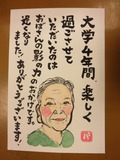 大学4年間、楽しく
過ごさせて
いただいたのは
おばさんの影の力
のおかげです。
遅くなり
ました、ありがとうございます!